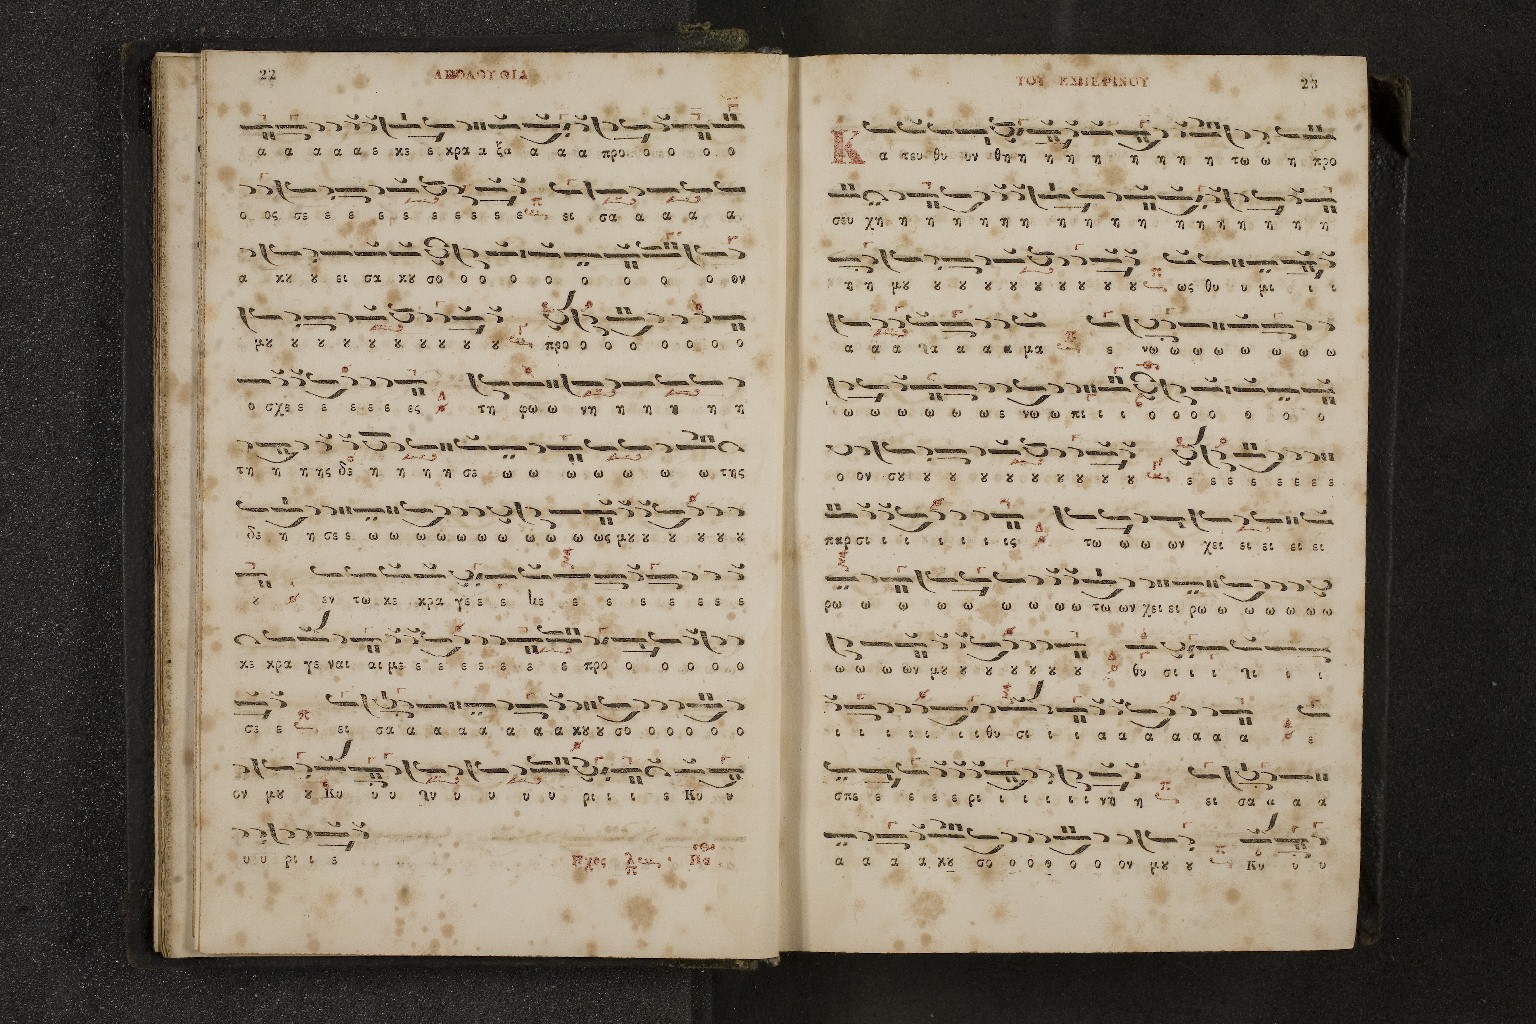 22
ΑΚΟΛΟΥΘΙΑ
α α α α α ε κε ε κρα α ξα α α α προ ο ο ο ο
ο ος σε ε ε ε ε ε ε ε ε ε ει σα α α α α
α κȣ ȣ ει σα κȣ σο ο ο ο ο ο ο ο ο ον
μȣ ȣ ȣ ȣ ȣ ȣ ȣ ȣ ȣ ȣ προ ο ο ο ο ο ο ο
ο σχε ε ε ε ε ε ες τη φω ω νη η η η η η
τη η η ης δε η η η η σε ω ω ω ω ω ω ω της
δε η η σε ε ω ω ω ω ω ω ω ω ω ω ως μȣ ȣ ȣ ȣ ȣ ȣ
ȣ εν τω κε κρα γε ε ε με ε ε ε ε ε ε ε
κε κρα γε ναι αι με ε ε ε ε ε ε ε προ ο ο ο ο ο
σε ε ει σα α α α α α α α κȣ ȣ σο ο ο ο ο ο
ον μȣ ȣ Κυ υ υ υ υ υ υ υ ρι ι ι ε Κυ υ
υ υ ρι ι ε
Ηχος Πα
ΤΟΥ ΕΣΠΕΡΙΝΟΥ
23
Κ α τευ θυ υν θη η η η η η η η η τω ω η προ
σευ χη η η η η η η η η η η η η η η η η η
η η μȣ ȣ ȣ ȣ ȣ ȣ ȣ ȣ ȣ ως θυ υ μι ι ι
α α α α α α α μα ε νω ω ω ω ω ω ω ω
ω ω ω ω ω ω ε νω ω πι ι ι ο ο ο ο ο ο ο
ο ον σȣ ȣ ȣ ȣ ȣ ȣ ȣ ȣ ȣ ȣ ε ε ε ε ε ε ε
παρ σι ι ι ι ι ι ις τω ω ω ων χει ει ει ει ει
ρω ω ω ω ω ω ω ω ω τω ων χει ει ρω ω ω ω ω ω
ω ω ω ων μȣ ȣ ȣ ȣ ȣ ȣ ȣ θυ σι ι ι ι ι
ι ι ι ι ι ι ι θυ σι ι ι ι α α α α α α α ε
σπε ε ε ε ε ρι ι ι ι ι ι νη η ει σα α α α
α α α α κȣ σο ο ο ο ο ο ον μȣ ȣ Κυ υ υ